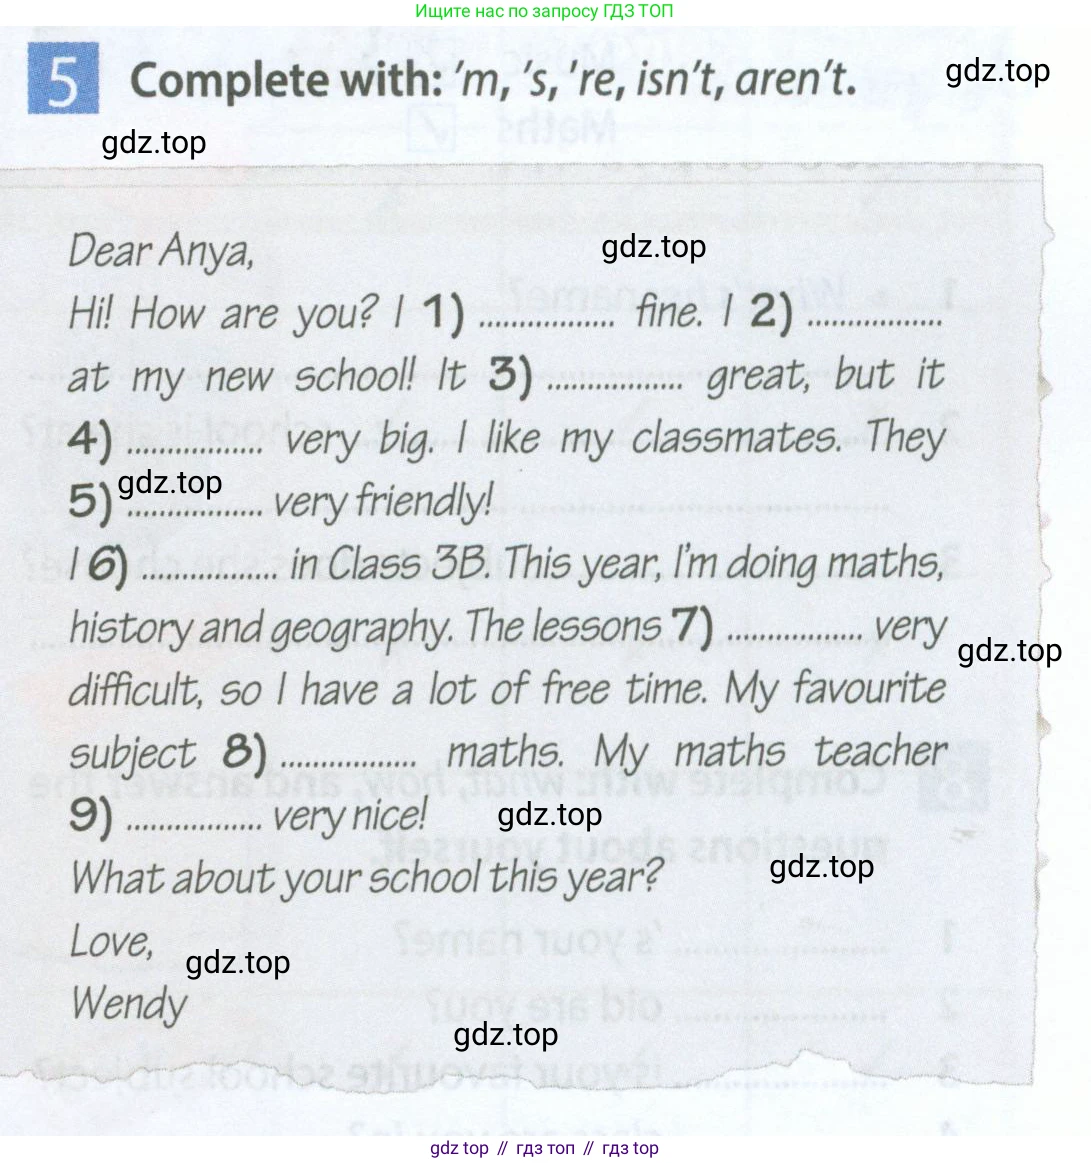 Ищите нас по запросу ГДЗ ТОП
5 Complete with: 'm, 's, 're, isn't, aren't.
gdz.top
gdz.top
Dear Anya,
gdz.top
Hi! How are you? I 1) ................. fine. I 2) .................
at my new school! It 3) ................. great, but it
4) ................. very big. I like my classmates. They
gdz.top
5) ................. very friendly!
I 6) ................. in Class 3B. This year, I'm doing maths,
history and geography. The lessons 7) ................. very
gdz.top
difficult, so I have a lot of free time. My favourite
subject 8) ................. maths. My maths teacher
9) ................. very nice!
gdz.top
What about your school this year?
gdz.top
Love,
gdz.top
Wendy
gdz.top
gdz top // гдз топ // гдз top